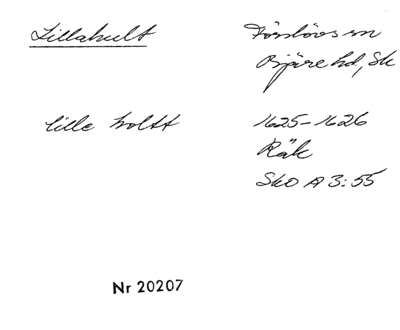 Lillahult
Förslövs sn
Bjäre hd, Sk
lille holtt
1625-1626
Räk
Sko A 3:55
Nr 20207